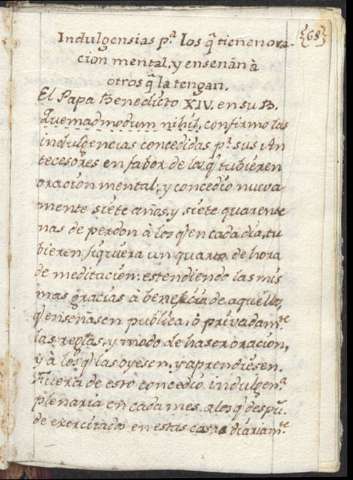 {68}
Indulgensias p.ª los q̃ tienen ora-
cion mental, y enseñan à
otros q̃ la tengan.
El Papa Benedicto XIV. en su B.
Quemadmodum nihil, confirmo las
indulgencias concedidas p.ª sus An
tecesores en fabor de los q̃ tubieren
oracion mental, y concedio nueva-
mente siete años, y siete quarente
nas de perdon à los q̃ en cada dia, tu
bieren siquiera un quarto de hora
de meditacion: estendiendo las mis
mas gracias à beneficia de aquellos,
q̃ enseñasen publica, ò privadam.te
las reglas, y modo de haser oracion,
y à los q̃ las oyesen, y aprendiesen.
Fuera de esto concedio indulgen.ª
plenaria en cada mes, a los q̃ despu.s
de exercitados en estas cosas diariam.te